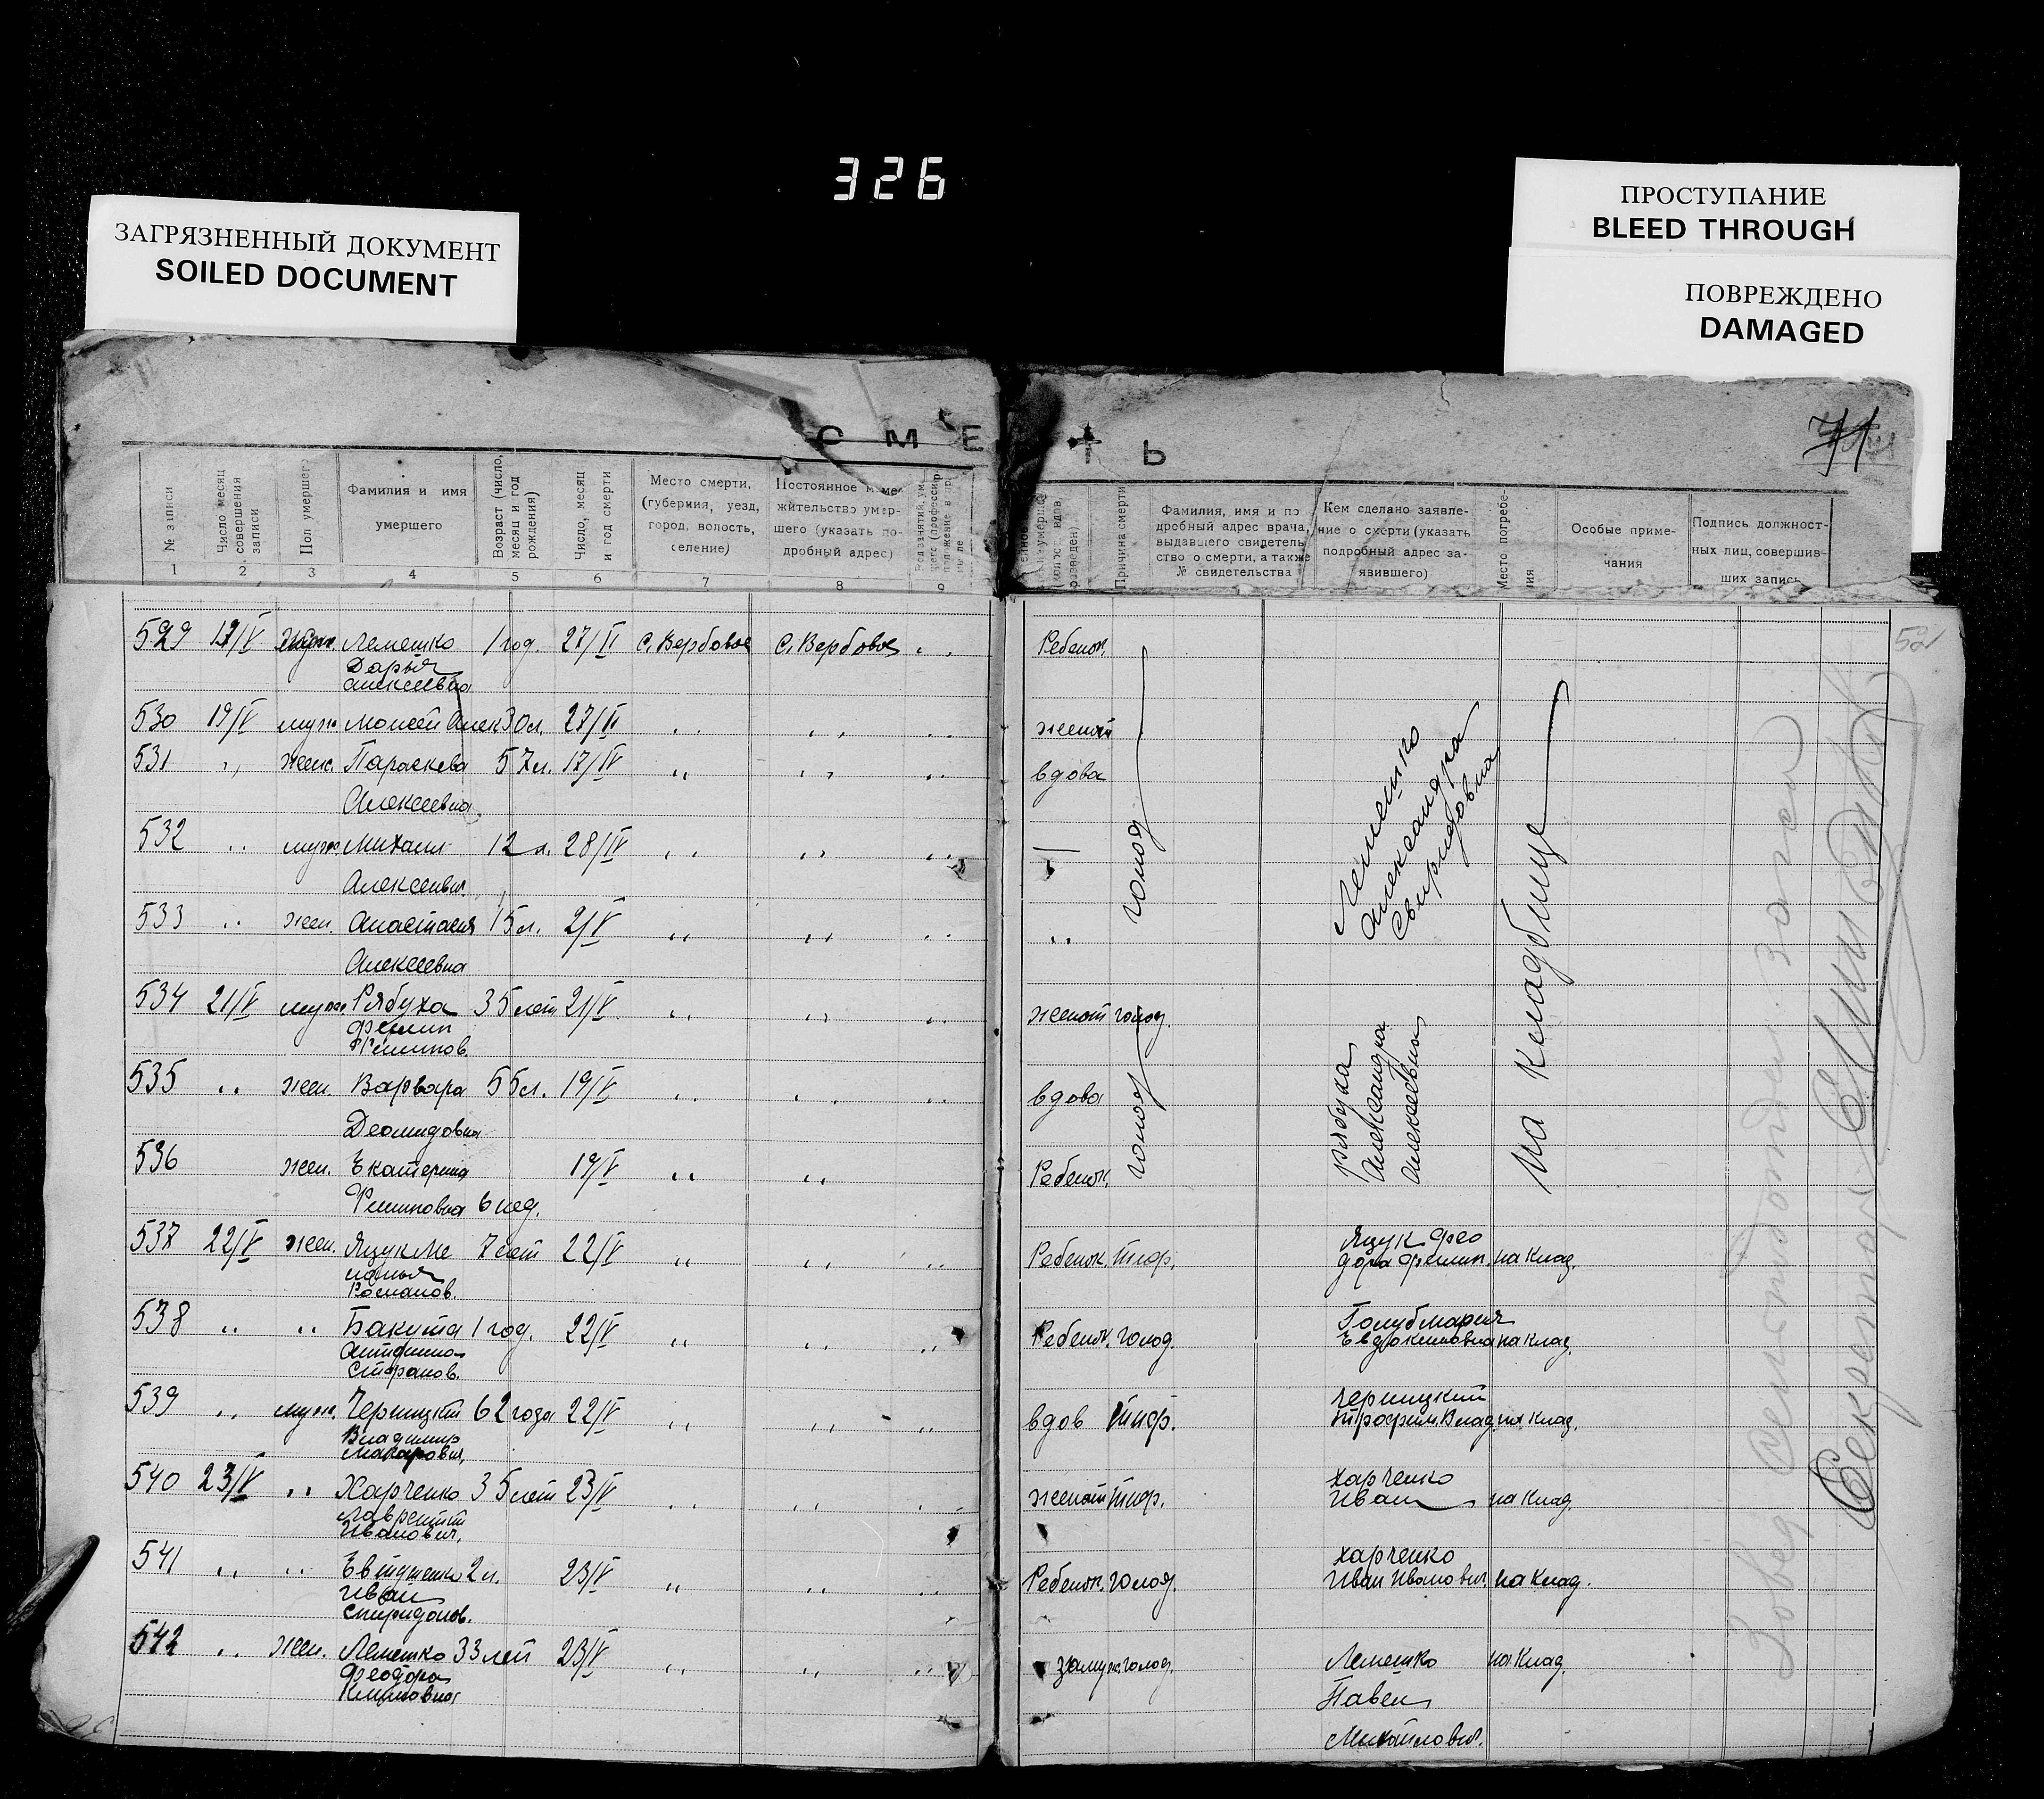 326
ЗАГРЯЗНЕННЫЙ ДОКУМЕНТ
SOILED DOCUMENT
ПРОСТУПАНИЕ
BLEED THROUGH
ПОВРЕЖДЕНО
DAMAGED
71
С М Е Т Ь
№ записи
Число месяц совершения записи
Пол умершего
Фамилия и имя умершего
Возраст (число, месяц и год рождения)
Число, месяц и год смерти
Место смерти, (губерния, уезд, город, волость, селение)
Постоянное жительство умершего (указать подробный адрес)
Причина смерти
Фамилия, имя и подробный адрес врача, выдавшего свидетельство о смерти, а также № свидетельства
Кем сделано заявление о смерти (указать подробный адрес заявившего)
Место погребения
Особые примечания
Подпись должностных лиц, совершивших запись
1 2 3 4 5 6 7 8 9
529 17/V Лемешко 1 год. 27/II С. Вербовое С. Вербовое " " Ребенок
Дарья
Алексеевна
530 19/V муж Моисей Алек 30 л. 27/II " " " " " " женат
531 " " женс. Параскева 57 л. 17/IV " " " " " " вдова
Алексеевна
532 " " муж Михаил 12 л. 28/IV " " " " " " —
Алексеевич
533 " " жен. Анастасия 15 л. 2/V " " " " " " " "
Алексеевна
голод
Лемешко
Александра
Свиридовна
на кладбище
534 21/V муж Рябуха 35 лет 21/V " " " " " " женат голод.
Филип
Филипов.
535 " " жен. Варвара 55 л. 19/V " " " " " " вдова
Деомидовна
536 жен. Екатерина 19/V " " " " Ребенок
Филиповна 6 нед.
голод
Рябуха
Александра
Алексеевна
537 22/V жен. Яцук Ме 7 лет 22/V " " " " Ребенок. тиф. Яцук Фео
лания дора Филип. на клад.
Романов.
538 " " " " Бакута 1 год. 22/V " " " " " " Ребенок. голод. Голуб Мария
Евдокимовна на клад.
Стефанов.
539 " " муж. Черницкий 62 года 22/V " " " " " " вдов тиф. Черницкий
Владимир Трофим Влад на клад.
Макарович,
540 23/V " " Харченко 35 лет 23/V " " " " " " женат тиф. Харченко
Лаврентий Иван на клад.
Иванович,
541 " " " " Евтушенко 2 л. 23/V " " " " " " Ребенок. голод. Харченко
Иван Иван Иванович, на клад.
Спиридонов.
542 " " жен. Лемешко 33 лет 23/V " " " " " " замуж. голод. Лемешко на клад.
Феодора Павел
Климовна Михайлович.
Секретарь